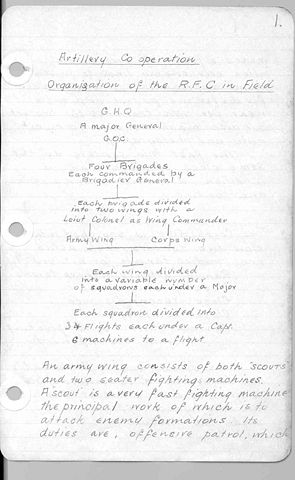 1.
Artillery Co operation
Organization of the R.F.C in Field
G.H.Q
A major General
G.O.C.
Four Brigades
Each commanded by a
Brigadier General
Each brigade divided
into two wings with a
Leiut Colonel as Wing Commander
Army Wing Corps Wing
Each wing divided
into a variable number
of squadrons each under a Major
Each squadron divided into
34 Flights each under a Capt.
6 machines to a flight
An army wing consists of both "scouts"
and two seater fighting machines.
A scout is a very fast fighting machine
the principal work of which is to
attack enemy formations. Its
duties are, offensive patrol, which